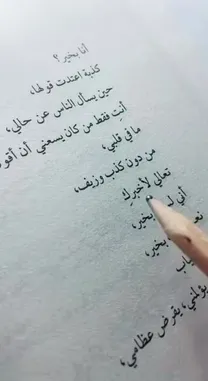 أنا بخير؟
كذبة اعتدت قولها،
حين يسأل الناس عن حالي،
أنتِ فقط من كان يسعني أن أقو
ما في قلبي،
من دون كذب وزيف،
تعالي لأخبركِ
أني لـ بخير،
نعـ بخير،
ياب
يؤلمني، يقرض عظامي،